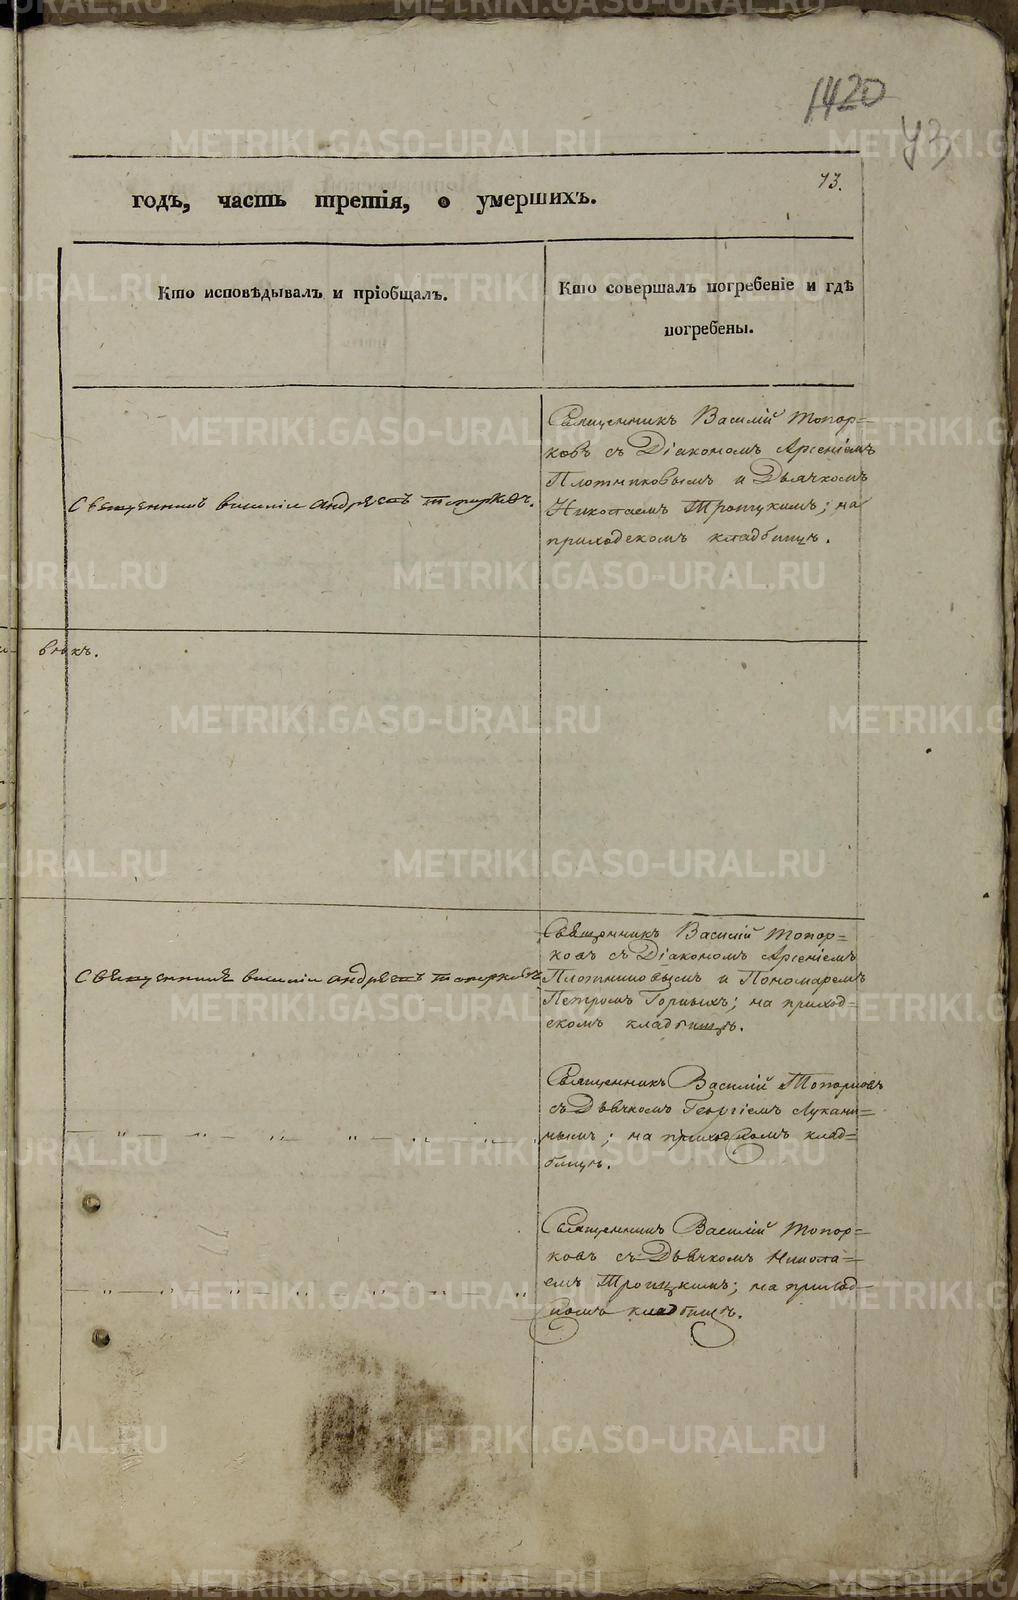 1420
43
43.
годъ, часть третія, о умершихъ.
Кто исповѣдывалъ и пріобщалъ.
Кто совершалъ погребеніе и гдѣ
погребены.
Священникъ Василій Топор=
ковъ съ Діакономъ Арсеніемъ
Плотниковымъ и Дьячкомъ
Николаемъ Троицкимъ; на
приходскомъ кладбищѣ.
Священникъ василіи андреевъ топорковъ.
вѣкъ.
Священникъ Василій Топор=
ковъ съ Діакономъ Арсеніемъ
Плотниковымъ и Пономаремъ
Петромъ Горныхъ; на приход=
скомъ кладбищѣ.
Священникъ василіи андреевъ топорковъ
Священникъ Василій Топорковъ
съ Дьячкомъ Георгіемъ Лукани=
нымъ; на приходскомъ клад=
бищѣ.
Священникъ Василій Топор=
ковъ съ Дьячкомъ Никола=
емъ Троицкимъ; на приход=
скомъ кладбищѣ.
METRIKI.GASO-URAL.RU